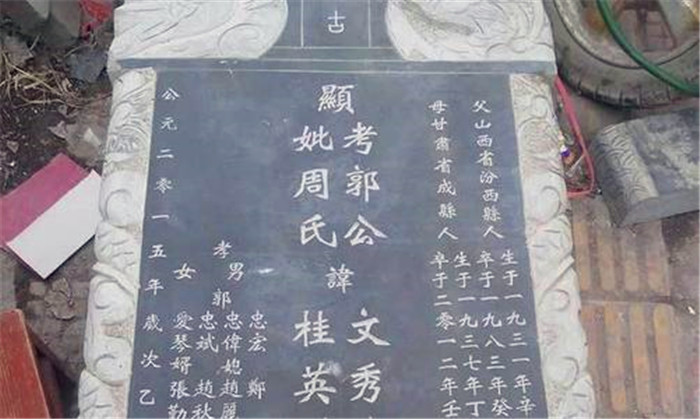 古
父山西省汾西縣人
生于一九三一年辛
卒于一九八三年癸
母甘肅省成縣人
生于一九三七年丁
卒于二零一二年壬
顯
考郭公諱文秀
妣周氏桂英
孝男郭
忠宏 鄭
忠偉媳趙麗
忠斌 趙秋
女愛琴婿張勤
公元二零一五年歲次乙